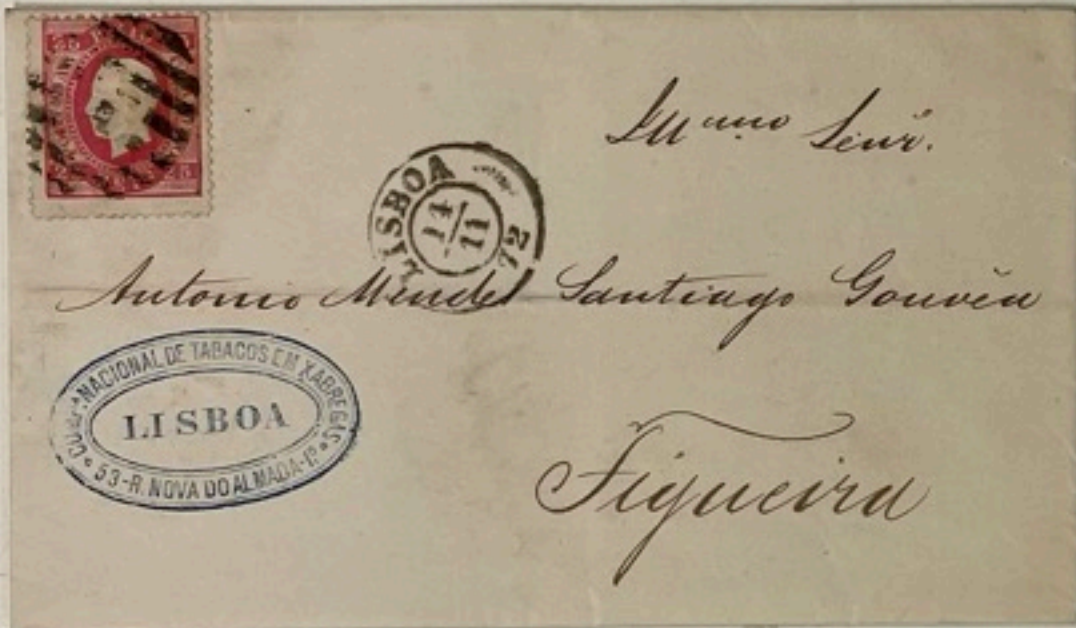 25 25
Illmo Senr.
LISBOA
14/11
72
Antonio Mendes Santiago Gouvêa
NACIONAL DE TABACOS EM XABREGAS
LISBOA
53-R. NOVA DO ALMADA-1º
Figueira